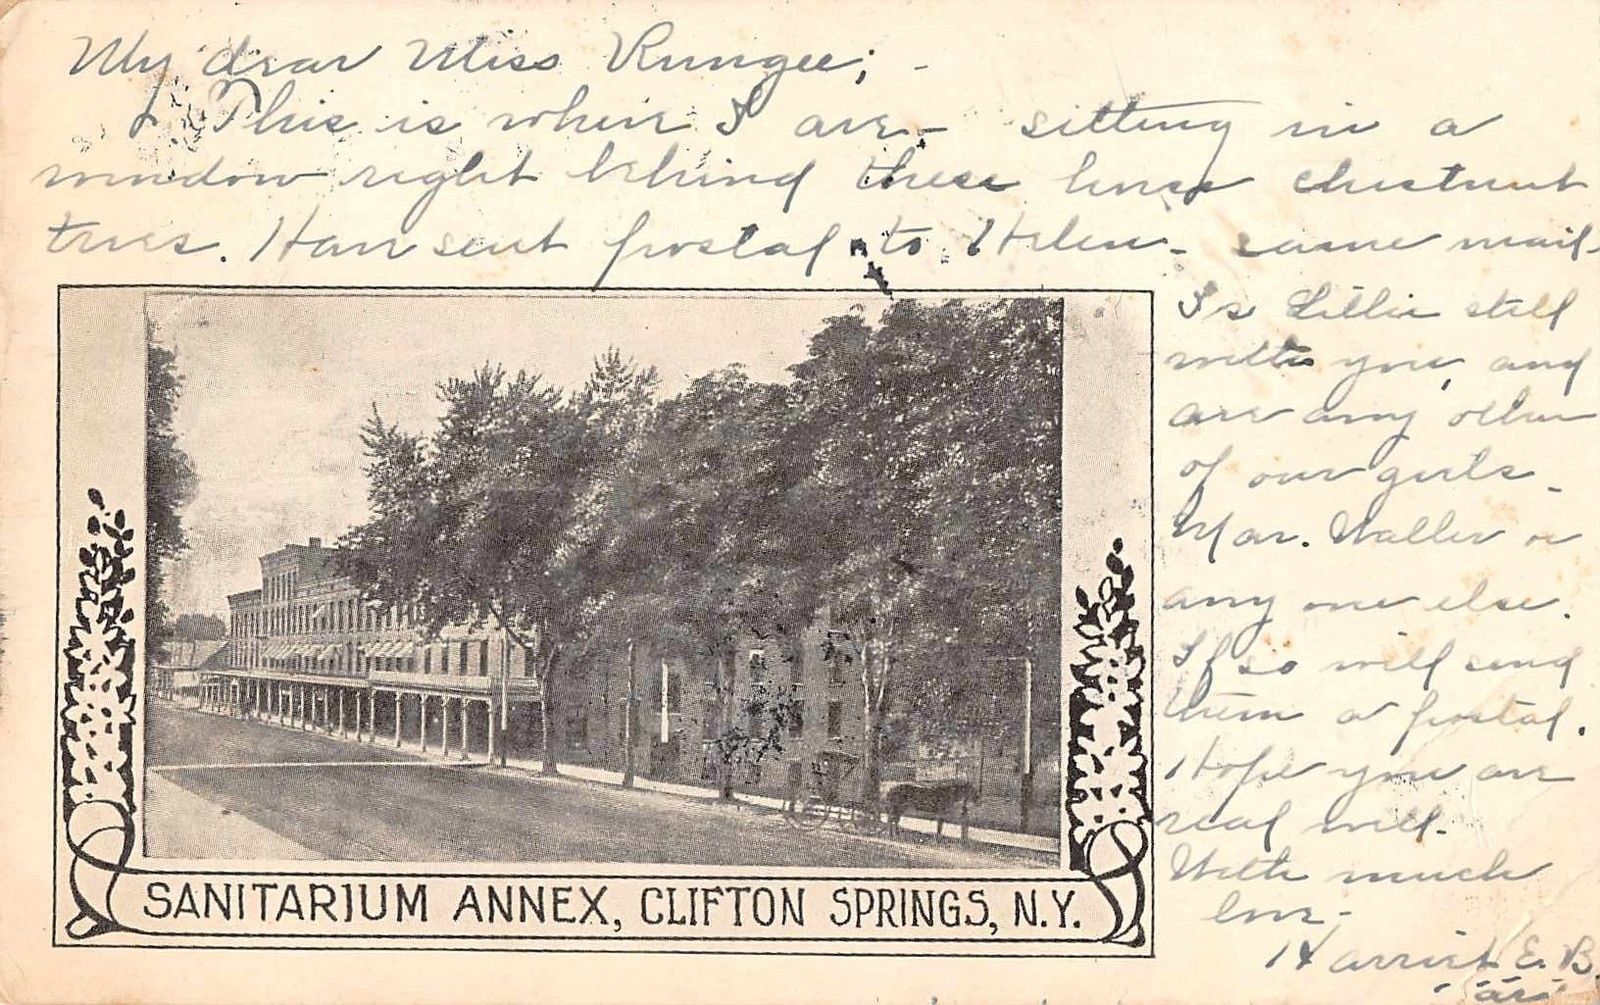 My dear Miss Rungee; -
This is where I are - sitting in a
window right behind these horse chestnut
trees. Have sent postal to Helen - same mail.
Is Lillie still
with you, and
are any other
of our girls -
Mar. Waller or
any one else.
If so will send
them a postal.
Hope you are
real well.
With much
love -
Harriet E. B.
SANITARIUM ANNEX, CLIFTON SPRINGS, N.Y.